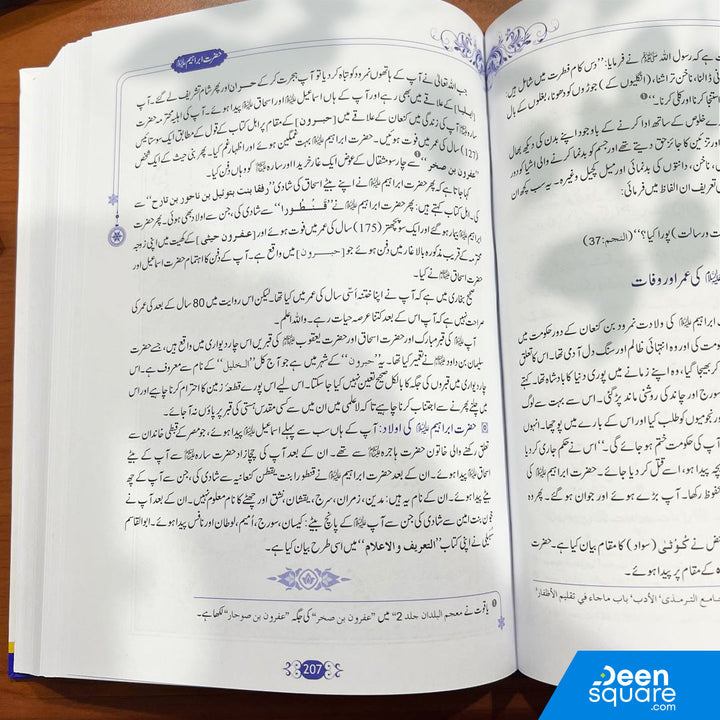 حضرت ابراہیم علیہ السلام
جب اللہ تعالیٰ نے آپ کے ہاتھوں نمرود کو تباہ کر دیا تو آپ ہجرت کر کے حران اور پھر شام تشریف لے گئے۔ آپ
[ایلیا] کے علاقے میں بھی رہے اور آپ کے ہاں اسماعیل علیہ السلام اور اسحاق علیہ السلام پیدا ہوئے۔ آپ کی اہلیہ محترمہ حضرت
سارہ آپ کی زندگی میں کنعان کے علاقے میں [حبرون] کے مقام پر اہل کتاب کے قول کے مطابق ایک سو ستائیس
(127) سال کی عمر میں فوت ہوئیں۔ حضرت ابراہیم علیہ السلام بہت غمگین ہوئے اور اظہار غم کیا۔ پھر بنی حیث کے ایک شخص
''عفرون بن صخر'' ❶ سے چار سو مثقال کے عوض ایک غار خریدا اور سارہ کو وہاں دفن کیا۔
کہا جاتا ہے کہ پھر حضرت ابراہیم علیہ السلام نے اپنے بیٹے اسحاق کی شادی ''رفقا بنت بتوئیل بن ناحور بن تارح'' سے
کی۔ اہل کتاب کہتے ہیں: پھر حضرت ابراہیم علیہ السلام نے ''قنطورا'' سے شادی کی، جن سے اولاد بھی ہوئی۔ پھر حضرت
ابراہیم علیہ السلام بیمار ہو گئے اور ایک سو پچھتر (175) سال کی عمر میں فوت ہوئے اور [عفرون حیثی] کے کھیت میں اپنی زوجہ
محترمہ کے قریب مذکورہ بالا غار میں دفن ہوئے جو [حبرون] میں واقع ہے۔ آپ کے دفن کا اہتمام حضرت اسماعیل اور
حضرت اسحاق علیہ السلام نے کیا۔
صحیح بخاری میں ہے کہ آپ نے اپنا ختنہ اسّی سال کی عمر میں کیا تھا۔ لیکن اس روایت میں 80 سال کے بعد کی عمر کی
صراحت نہیں ہے کہ آپ اس کے بعد کتنا عرصہ حیات رہے۔ واللہ اعلم۔
آپ کی قبر مبارک اور حضرت اسحاق اور حضرت یعقوب علیہ السلام کی قبریں اس چار دیواری میں واقع ہیں، جسے حضرت
سلیمان بن داود علیہ السلام نے تعمیر کیا تھا۔ یہ ''حبرون'' کے شہر میں ہے جو آج کل ''الخلیل'' کے نام سے معروف ہے۔ اس
چار دیواری میں قبروں کی جگہ کا بالکل صحیح تعین نہیں کیا جا سکتا۔ اس لیے اس پورے قطعۂ زمین کا احترام کرنا چاہیے اور اس
میں چلنے پھرنے سے اجتناب کرنا چاہیے تاکہ لاعلمی میں ان میں سے کسی مقدس ہستی کی قبر پر پاؤں نہ آجائے۔
حضرت ابراہیم علیہ السلام کی اولاد: آپ کے ہاں سب سے پہلے اسماعیل علیہ السلام پیدا ہوئے، جو مصر کے قبطی خاندان سے
تعلق رکھنے والی خاتون حضرت ہاجرہ سے تھے۔ ان کے بعد آپ کی چچازاد حضرت سارہ سے آپ کے بیٹے
اسحاق علیہ السلام پیدا ہوئے۔ ان کے بعد حضرت ابراہیم علیہ السلام نے قنطورا بنت یقطن کنعانیہ سے شادی کی، جن سے آپ کے چھ
بیٹے پیدا ہوئے۔ ان کے نام یہ ہیں: مدین، زمران، سرج، یقشان، نشق اور چھٹے کا نام معلوم نہیں۔ ان کے بعد آپ نے
حجون بنت امین سے شادی کی جن سے آپ علیہ السلام کے پانچ بیٹے: کیسان، سورج، امیم، لوطان اور نافس پیدا ہوئے۔ ابوالقاسم
سہیلی نے اپنی کتاب ''التعریف والاعلام'' میں اسی طرح بیان کیا ہے۔
❶ یاقوت نے معجم البلدان جلد 2'' میں ''عفرون بن صخر'' کی جگہ ''عفرون بن صوحار'' لکھا ہے۔
207
ہے کہ رسول اللہ ﷺ نے فرمایا: ''دس کام فطرت میں شامل ہیں:
ڈالنا، ناخن تراشنا، (انگلیوں کے) جوڑوں کو دھونا، بغلوں کے بال
استنجا کرنا اور کلی کرنا۔'' ❶
خلوص کے ساتھ ادا کرنے کے باوجود اپنے بدن کی دیکھ بھال
اور تزئین کا جائز حق دیتے تھے اور جسم کو بدنما کرنے والی اشیا کو دور
ناخن، دانتوں کی بدنمائی اور میل کچیل وغیرہ۔ یہ سب کچھ ان
تعریف ان الفاظ میں فرمائی:
ت ورسالت) پورا کیا؟'' (النجم: 37)
کی عمر اور وفات
ابراہیم علیہ السلام کی ولادت نمرود بن کنعان کے دور حکومت میں
حکومت کی اور وہ انتہائی ظالم اور سنگ دل آدمی تھا۔ اس کا تعلق
بھیجا گیا، وہ اپنے زمانے میں پوری دنیا کا بادشاہ تھا۔ کہتے
سورج اور چاند کی روشنی ماند پڑ گئی۔ اس سے بہت سے لوگ
نجومیوں کو طلب کیا اور اس کے بارے میں پوچھا۔ انہوں
آپ کی حکومت ختم ہو جائے گی۔'' اس نے حکم جاری کر دیا
بچہ پیدا ہو، اسے قتل کر دیا جائے۔ حضرت ابراہیم علیہ السلام کی
محفوظ رکھا۔ آپ بڑے ہوئے اور جوان ہو گئے۔ پھر وہ
نے کُوثٰی (سواد) کا مقام بیان کیا ہے۔ حضرت
کے مقام پر پیدا ہوئے۔
جامع الترمذی، الأدب، باب ماجاء فی تقلیم الأظفار
Deen
square
.com